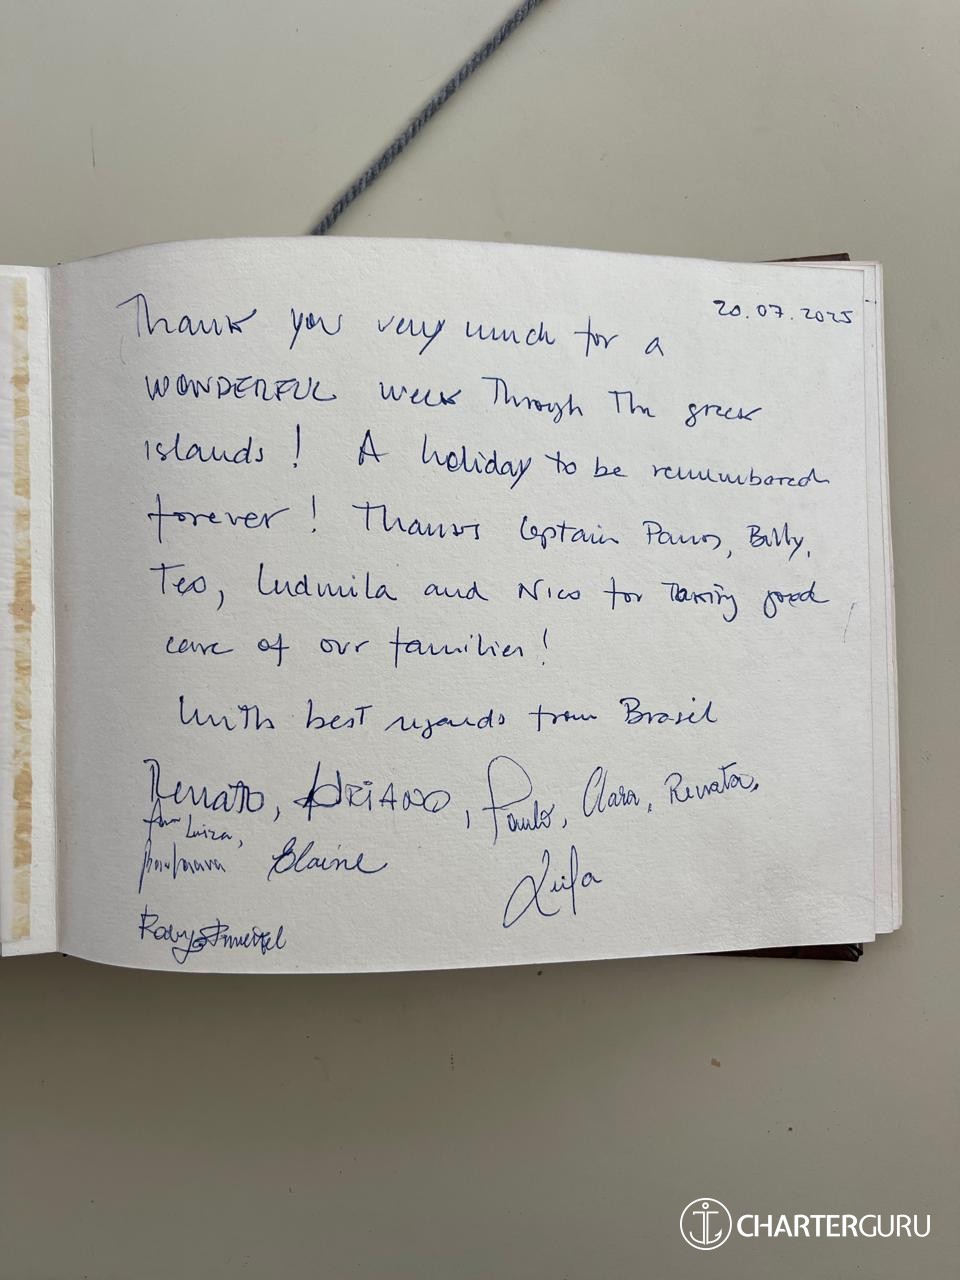 20.07.2025
Thank you very much for a
WONDERFUL week through the greek
islands! A holiday to be remembered
forever! Thanks Captain Panos, Billy,
Teo, Ludmila and Nico for taking good
care of our families!
With best regards from Brasil
Renato, ADRIANO, Paulo, Clara, Renata,
Luiza,
Elaine
CHARTERGURU